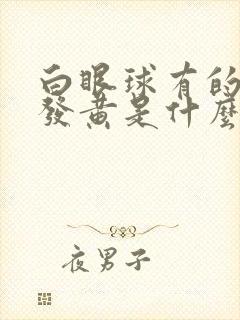 白眼球有的
發黃是什麼
夜男子